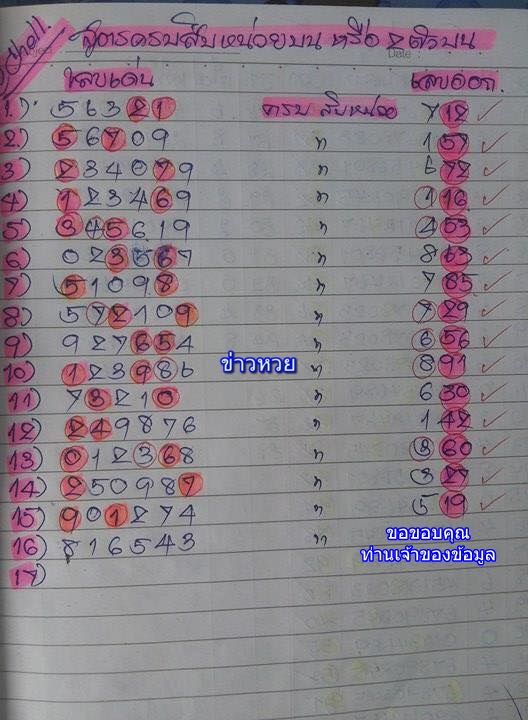 chell.
สูตรครบสิบหน่วยบน หรือ 2 ตัวบน
Date :
เลขเด่น เลขออก
1.) 56321 ครบ สิบหน่วย 712 ✓
2.) 56709 " 157 ✓
3) 234079 " 672 ✓
4) 123469 " 116 ✓
5) 345619 " 453 ✓
6) 023567 " 863 ✓
7) 51098 " 785 ✓
8) 572109 " 729 ✓
9) 927654 " 656 ✓
10) 123986 " 891 ✓
11) 73210 " 630 ✓
12) 249876 " 142 ✓
13) 012368 " 360 ✓
14) 250987 " 327 ✓
15) 901274 " 519 ✓
16) 816543 "
17)
ข่าวหวย
ขอขอบคุณ
ท่านเจ้าของข้อมูล